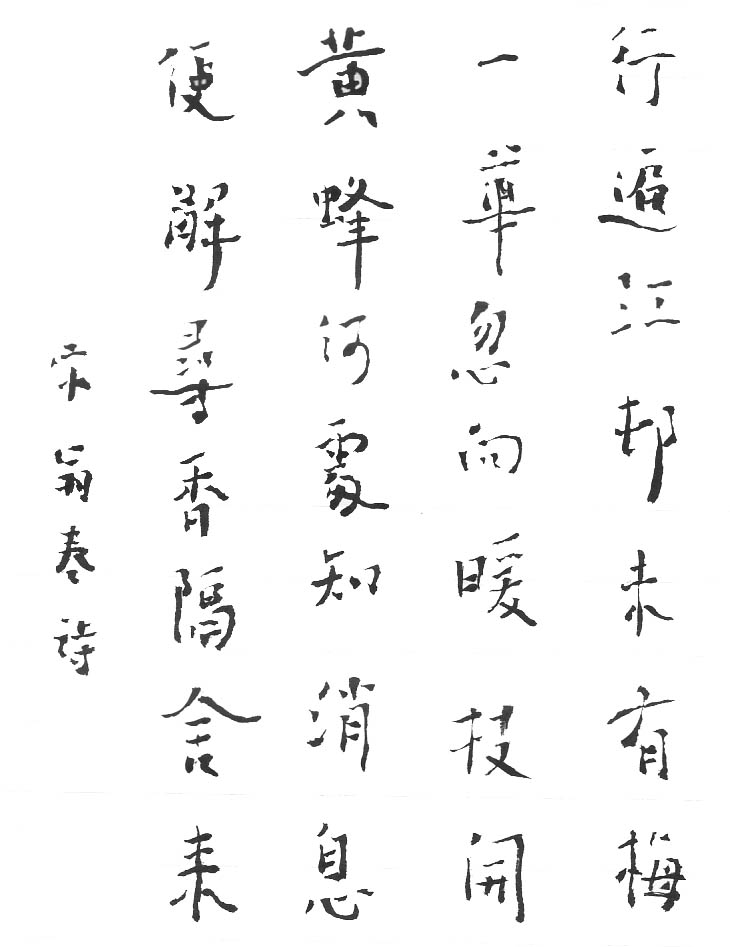 行遍江邨未有梅
一華忽向暖枝開
黄蜂何處知消息
便解尋香隔舍来
宋翁卷詩